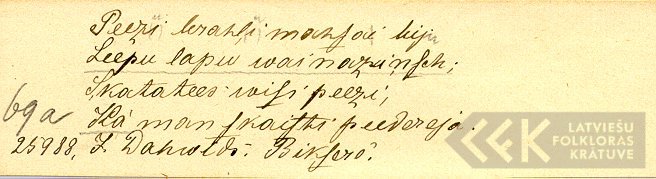 Peezi brahļi mahsai bij
Leepu lapu wainaziņsch;
Skatatees wisi peezi,
69a
Kà man skaisti peedereja.
25988, J. Dahwids. Bikserê.
LATVIEŠU
FOLKLORAS
KRĀTUVE